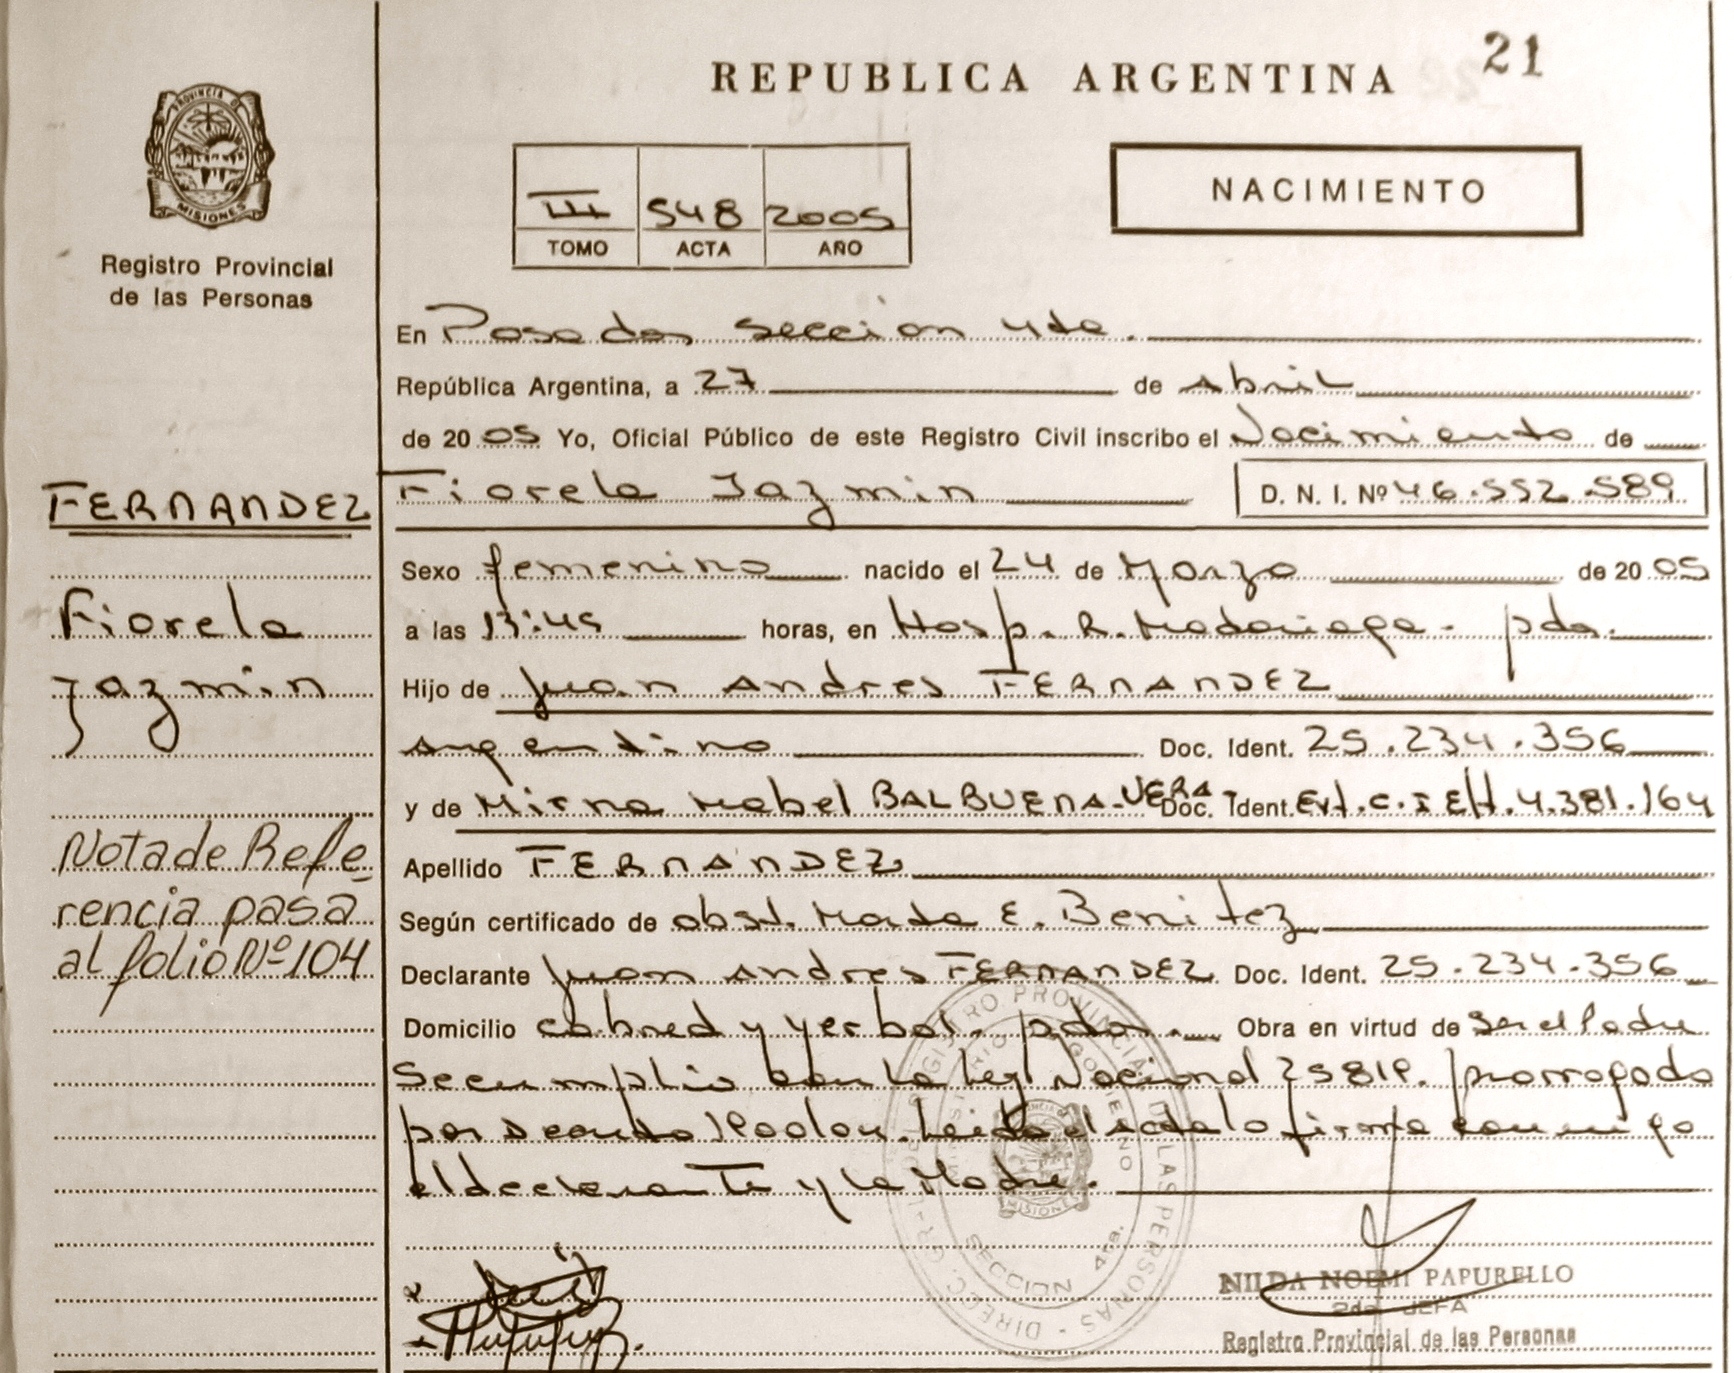 21
REPUBLICA ARGENTINA
PROVINCIA D
MISIONES
Registro Provincial
de las Personas
III 548 2005
TOMO ACTA AÑO
NACIMIENTO
En Posadas seccion 4ta.
República Argentina, a 27 de Abril
de 2005 Yo, Oficial Público de este Registro Civil inscribo el Nacimiento de
Fiorela Jazmin D. N. I. Nº 46.552.589
FERNANDEZ
Fiorela
Jazmin
Sexo femenino nacido el 24 de Marzo de 2005
a las 13:45 horas, en Hosp. R. Madariaga - pdas.
Hijo de Juan Andres FERNANDEZ
Argentino Doc. Ident. 25.234.356
y de Mirna Mabel BALBUENA-VERA Doc. Ident. 4.381.164
Nota de Refe
rencia pasa
al folio Nº 104
Apellido FERNANDEZ
Según certificado de obst. E. Benitez
Declarante Juan Andres FERNANDEZ Doc. Ident. 25.234.356
Domicilio cabred y yerbal. pdas. Obra en virtud de Ser el Padre
Se cumplio con la ley Nacional 25819. prorrogada
por Leida el acta lo firma conmigo
el declarante y la Madre.
DIRECC. GRAL. REGISTRO PROVINCIAL DE LAS PERSONAS
MINISTERIO GOBIERNO
MISIONES
SECCION 4ta.
NILDA NOEMI PAPURELLO
2da. JEFA
Registro Provincial de las Personas